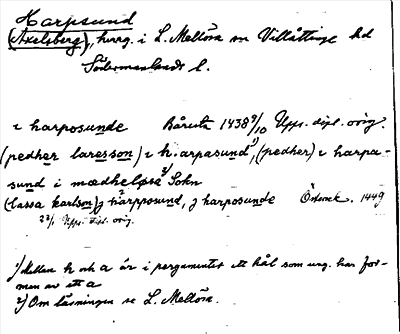 Harpsund
(Axelsberg), herrg. i L. Mellösa sn Villåttinge hd
Södermanlands l.
i harposunde Bårsta 1438 9/10 Upps. dipl. orig.
(pedher laresson) i h.arpasund 1), (pedher) i harpa-
sund i mædheløsa 2) Sohn
(lassa karlson) j harpposund, j harposunde 1449
22/1 Upps. dipl. orig.
1) Mellan h och a är i pergamentet ett hål som urg. har for-
men av ett a
2) Om läsningen se L. Mellösa.